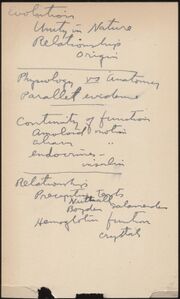 evolution
Unity in Nature
Relationship
Origin
Physiology vs Anatomy
Parallel evidence
Continuity of function
Amoeboid motion
"
endocrines -
insulin
Relationship
Precipitin tests
Nuttall
Boyden Salamander
Hemoglobin function
crystals